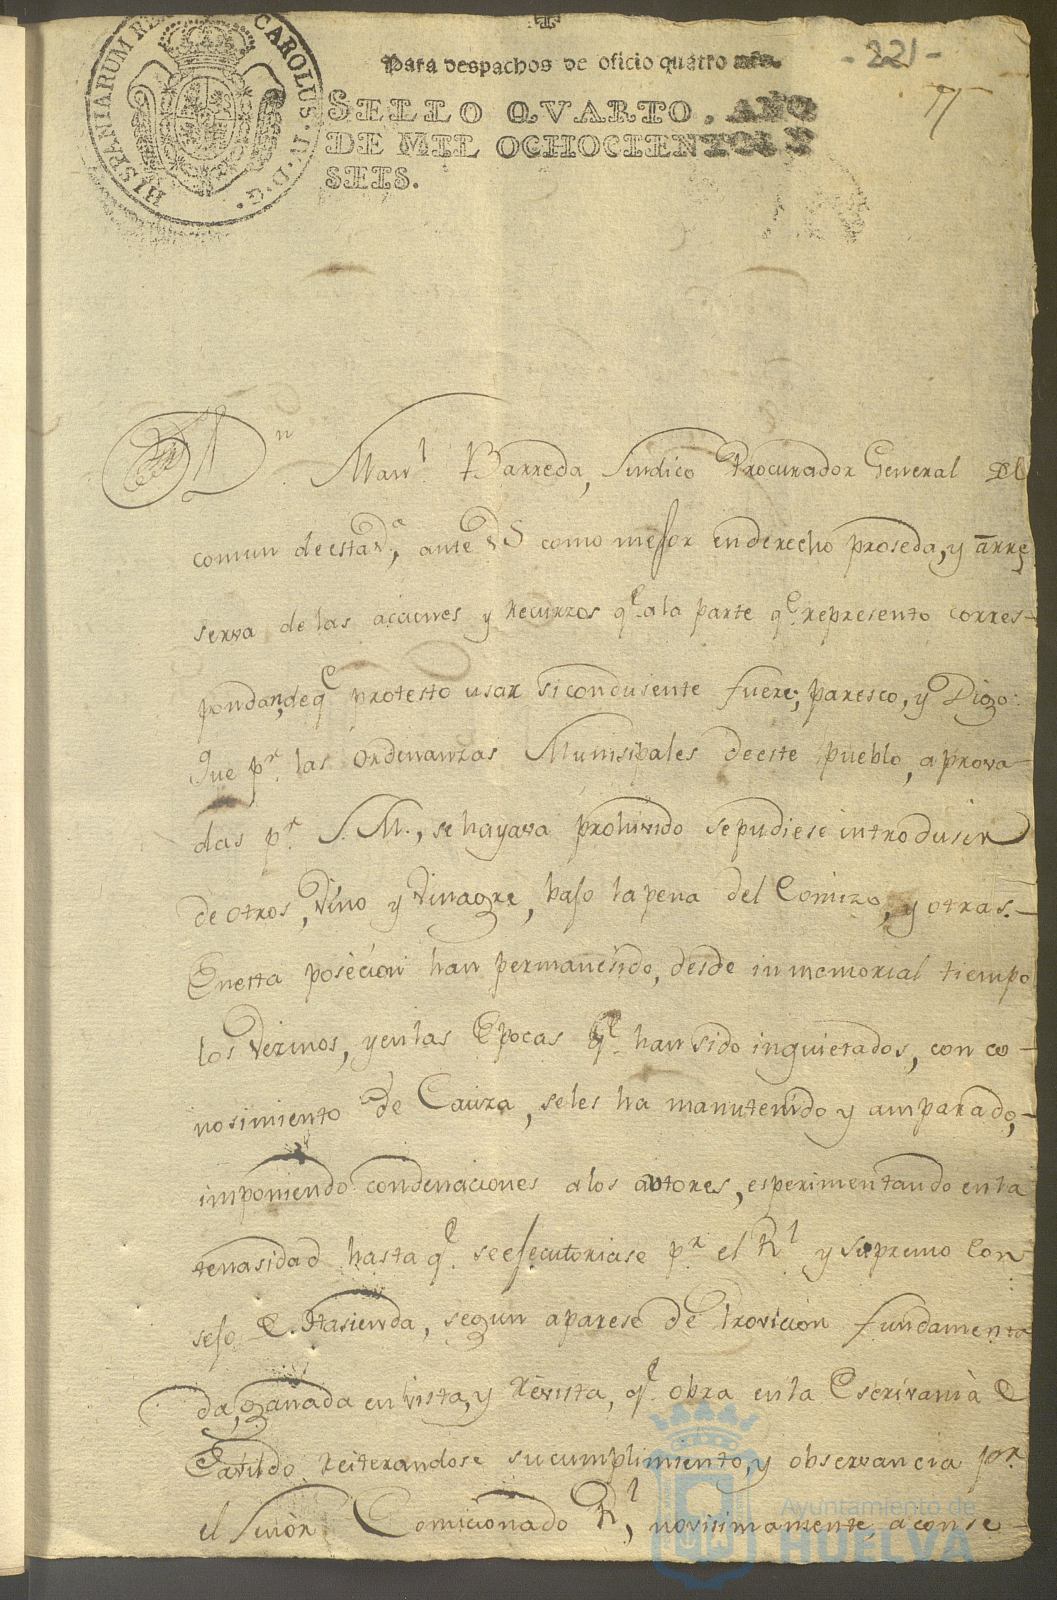 HISPANIARUM REX CAROLUS IV D. G.
Para despachos de oficio quatro mrs.
SELLO QVARTO, AÑO
DE MIL OCHOCIENTOS Y
SEIS.
-221-
Dn. Manl. Barreda, Sindico Procurador General del
comun de esta va., ante VS como mejor en derecho proseda, y a rre
serva de las aciones y recurzos qe. a la parte qe. represento corres-
pondan, de qe. protesto usar si condusente fuere, paresco, y Digo:
Que pr. las Ordenanzas Munisipales de este pueblo, aprova-
das pr. S. M., se hayava prohivido se pudiese introdusir
de otros, Vino y Vinagre, bajo la pena del Comizo, y otras.-
En esta poseción han permanesido, desde inmemorial tiempo
los Vezinos, y en las Epocas qe. han sido inquietados, con co-
nosimiento de Cauza, se les ha manutenido y amparado,-
imponiendo condenaciones a los autores, esperimentando en la
tenasidad hasta qe. se ejecutoriase pr. el Rl. y Supremo Con
sejo de Hasienda, segun aparese de Provición fundamenta
da, ganada en vista, y Revista, qe. obra en la Escrivania de
Cavildo reiterandose su cumplimiento, y observancia pr.
el Señor Comicionado Rl., novisimamente, a conse-
Ayuntamiento de
HUELVA